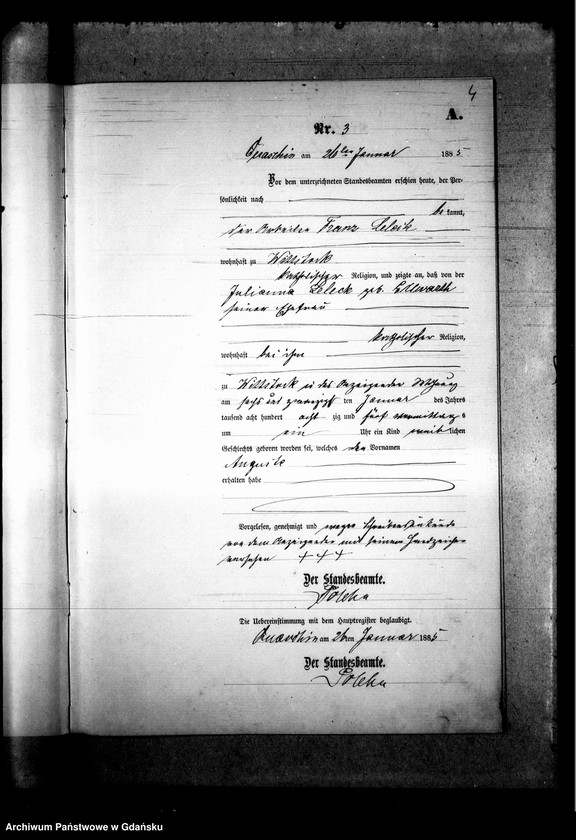 4
A.
Nr. 3
Quaschin am 26ten Januar 1885
Vor dem unterzeichneten Standesbeamten erschien heute, der Per-
sönlichkeit nach
be kannt,
der Arbeiter Franz
wohnhaft zu Wittstock
katholischer Religion, und zeigte an, daß von der
Julianna geb.
seiner Ehefrau
katholischer Religion,
wohnhaft bei ihm
zu Wittstock in des Anzeigenden Wohnung
am sechs und zwanzigsten Januar des Jahres
tausend acht hundert acht zig und fünf vormittags
um ein Uhr ein Kind weib lichen
Geschlechts geboren worden sei, welches den Vornamen
Auguste
erhalten habe
Vorgelesen, genehmigt und wegen Schreibensunkunde
von dem Anzeigenden mit seinem Handzeichen
versehen + + +
Der Standesbeamte.
Die Uebereinstimmung mit dem Hauptregister beglaubigt.
Quaschin am 26ten Januar 1885
Der Standesbeamte.
Archiwum Państwowe w Gdańsku